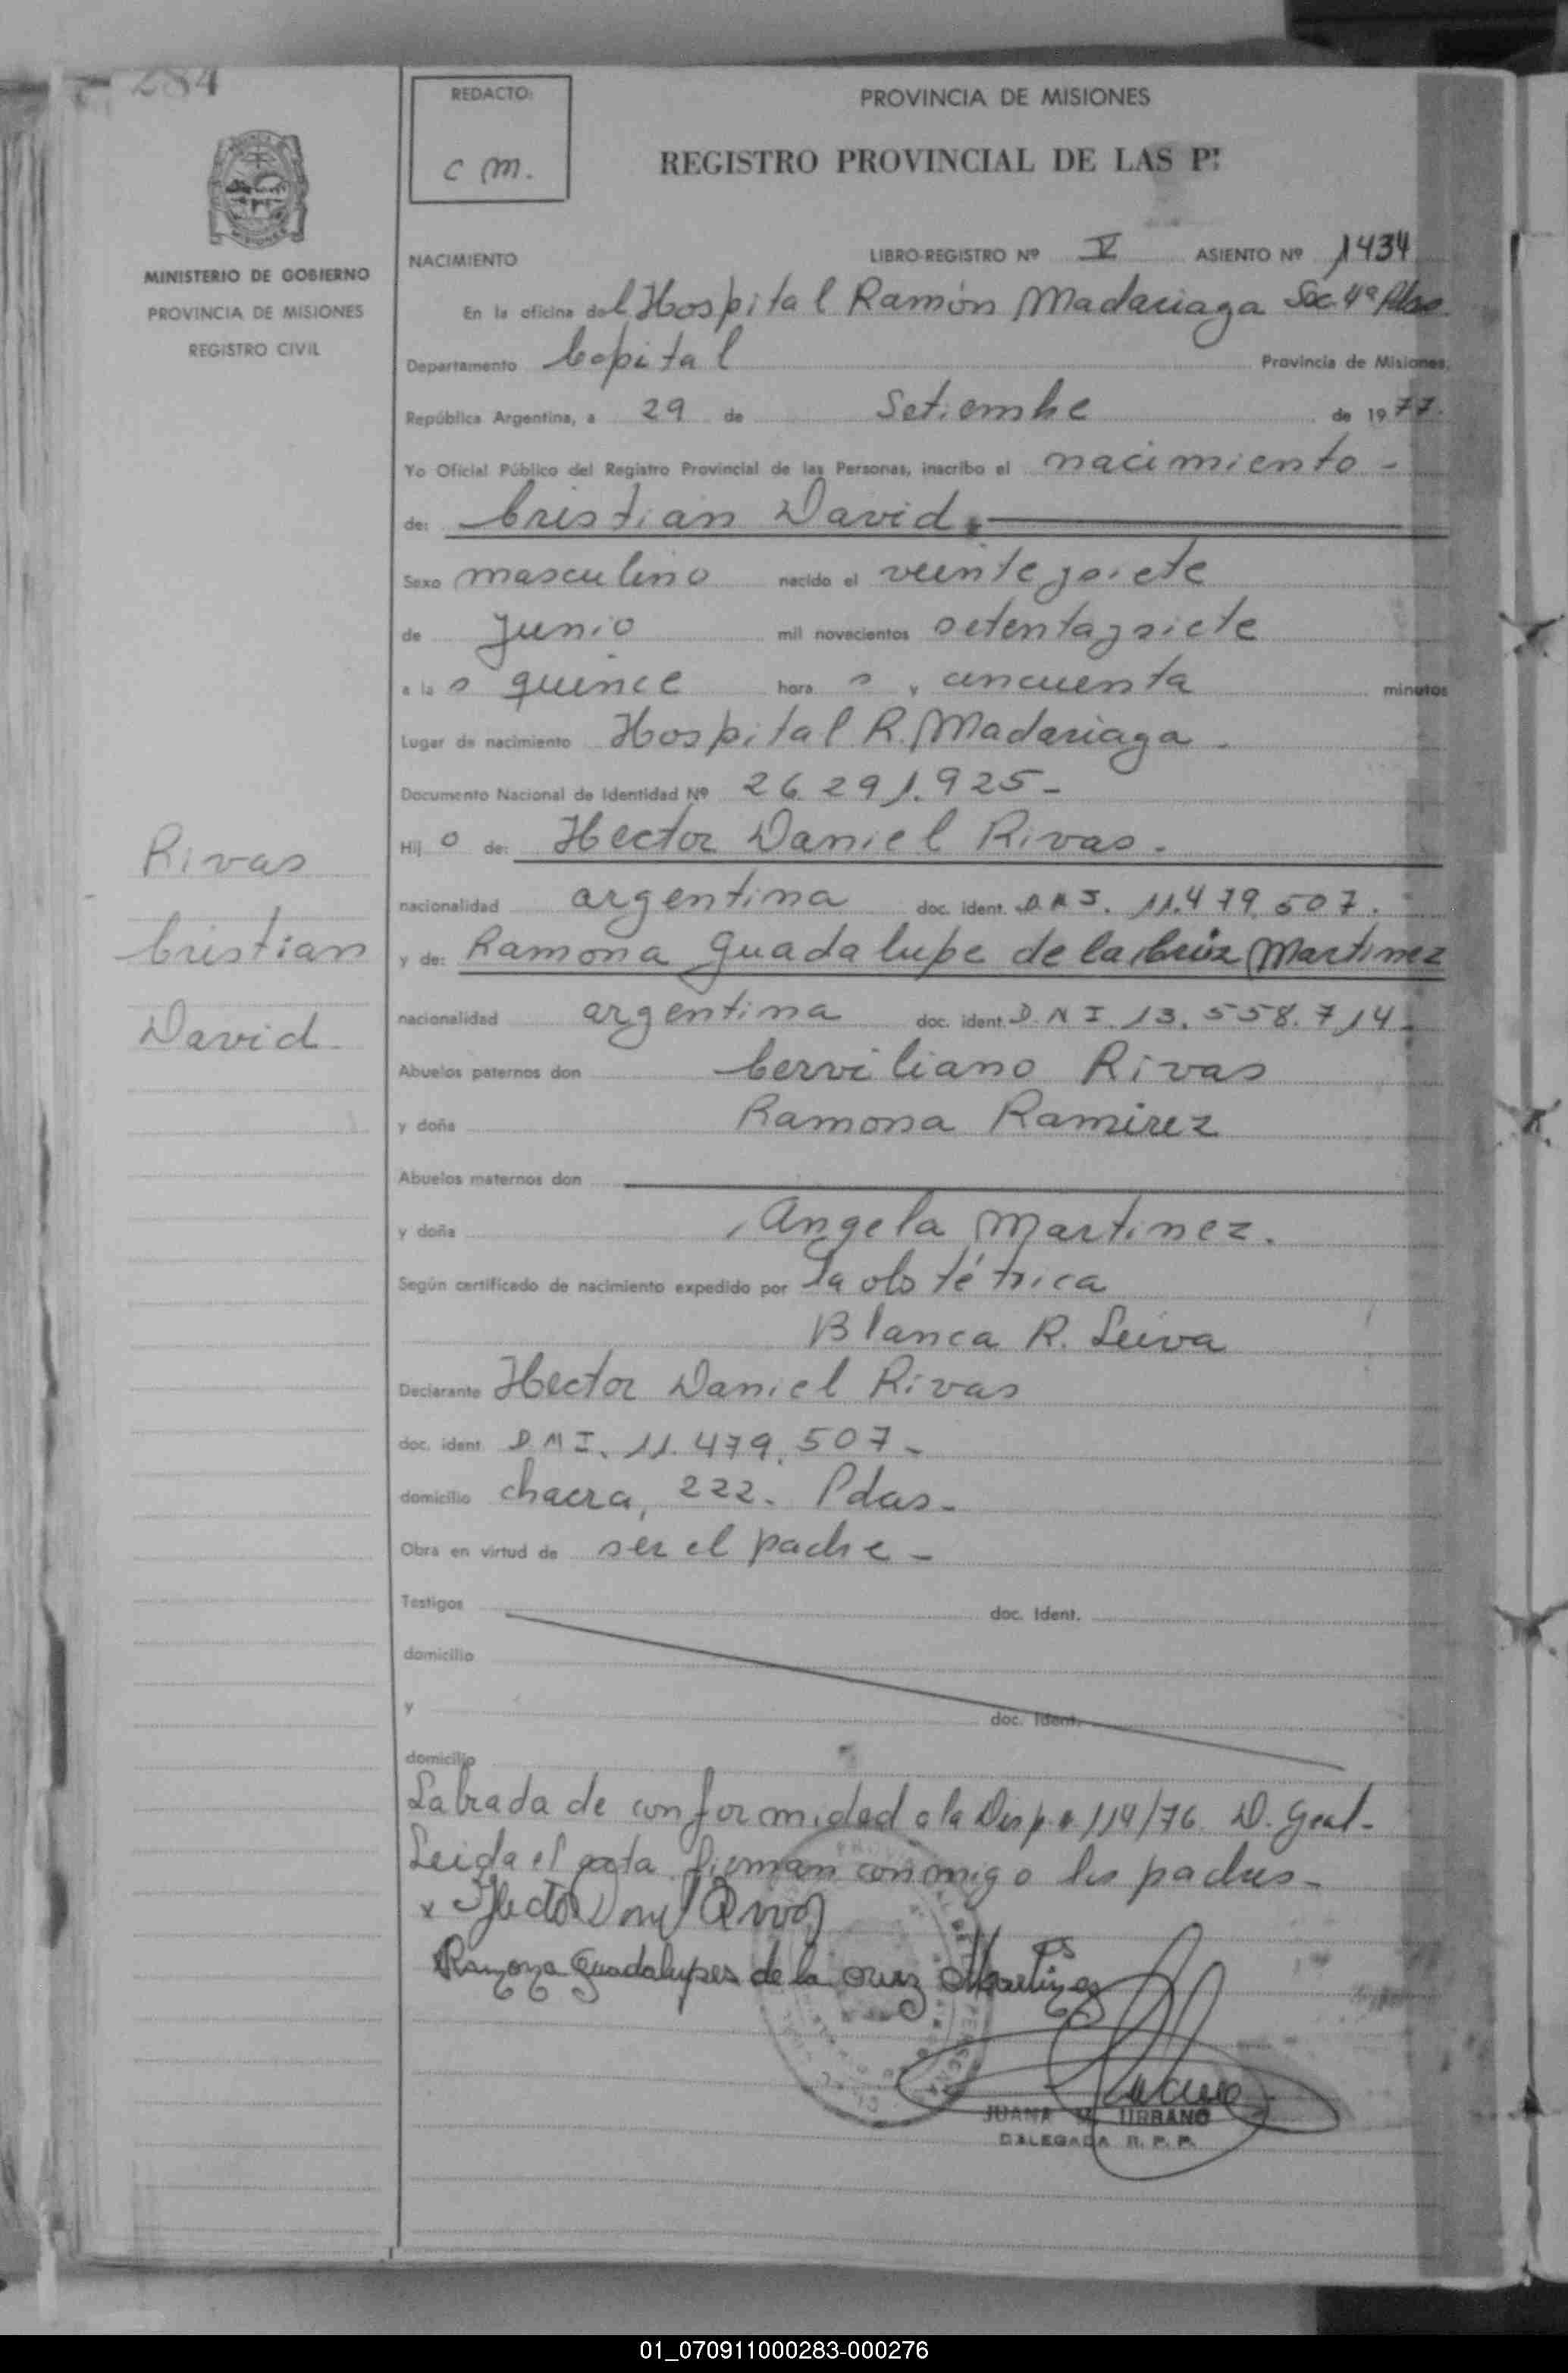 284
REDACTO:
C M.
PROVINCIA DE MISIONES
REGISTRO PROVINCIAL DE LAS P
MINISTERIO DE GOBIERNO
PROVINCIA DE MISIONES
REGISTRO CIVIL
NACIMIENTO LIBRO-REGISTRO Nº V ASIENTO Nº 1434
En la oficina del Hospital Ramón Madariaga Sec. 4ª
Departamento Capital Provincia de Misiones,
República Argentina, a 29 de Setiembre de 1977.
Yo Oficial Público del Registro Provincial de las Personas, inscribo el nacimiento -
de: Cristian David.
Sexo masculino nacido el veintey siete
de Junio mil novecientos setentaysiete
a las quince horas y cincuenta minutos
Lugar de nacimiento Hospital R. Madariaga.
Documento Nacional de Identidad Nº 26.291.925-
Hijo de: Hector Daniel Rivas.
nacionalidad argentina doc. ident. D.N.I. 11.479.507.
y de: Ramona Guadalupe de la Cruz Martinez
nacionalidad argentina doc. ident. D.N.I. 13.558.714.
Abuelos paternos don Cerviliano Rivas
y doña Ramona Ramirez
Abuelos maternos don
y doña Angela Martinez.
Según certificado de nacimiento expedido por la obstétrica
Blanca R. Leiva
Declarante Hector Daniel Rivas
doc. ident. D.N.I. 11.479.507-
domicilio chacra, 222. Pdas-
Obra en virtud de ser el padre-
Testigos doc. Ident.
domicilio
y doc. Ident.
domicilio
Labrada de conformidad a la Disp. 114/76. D. Gral-
Leida el acta firman conmigo los padres-
x Hector Daniel Rivas
Ramona Guadalupes de la cruz Martinez
JUANA URBANO
DELEGADA R. P. P.
Rivas
Cristian
David
01_070911000283-000276